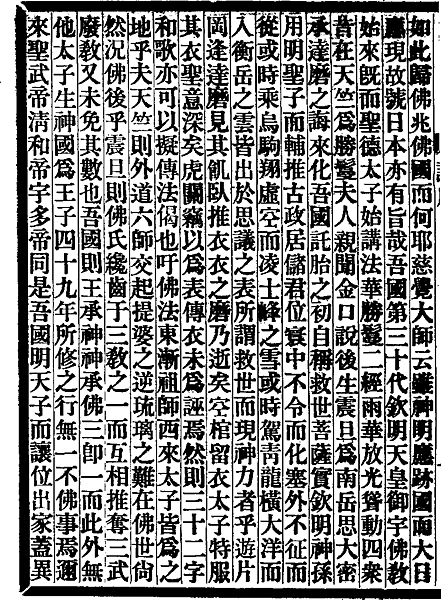 如此歸佛兆佛國而何耶慈覺大師云靈神明應跡國而大日
應現故號日本亦有旨哉吾國第三十代欽明天皇御宇佛敎
始來旣而聖德太子始講法華勝鬘二經雨華放光聳動四衆
昔在天竺爲勝鬘夫人親聞金口說後生震旦爲南岳思大密
承達磨之誨來化吾國託胎之初自稱救世菩薩實欽明神孫
用明聖子而輔推古政居儲君位寰中不令而化塞外不征而
從或時乘烏駒翔虛空而凌士峰之雪或時駕靑龍橫大洋而
入衡岳之雲皆出於思議之表所謂救世而現神力者乎遊片
岡逢達磨見其飢臥推衣衣之磨乃逝矣空棺留衣太子特服
其衣聖意深矣虎關竊以爲表傳衣未爲誣焉然則三十二字
和歌亦可以擬傳法偈也吁佛法東漸祖師西來太子皆爲之
地乎夫天竺則外道六師交起提婆之逆琉璃之難在佛世尙
然況佛後乎震旦則佛氏纔齒于三敎之一而互相推奪三武
廢敎又未免其數也吾國則王承神神承佛三卽一而此外無
他太子生神國爲王子四十九年所修之行無一不佛事焉邇
來聖武帝淸和帝宇多帝同是吾國明天子而讓位出家蓋異